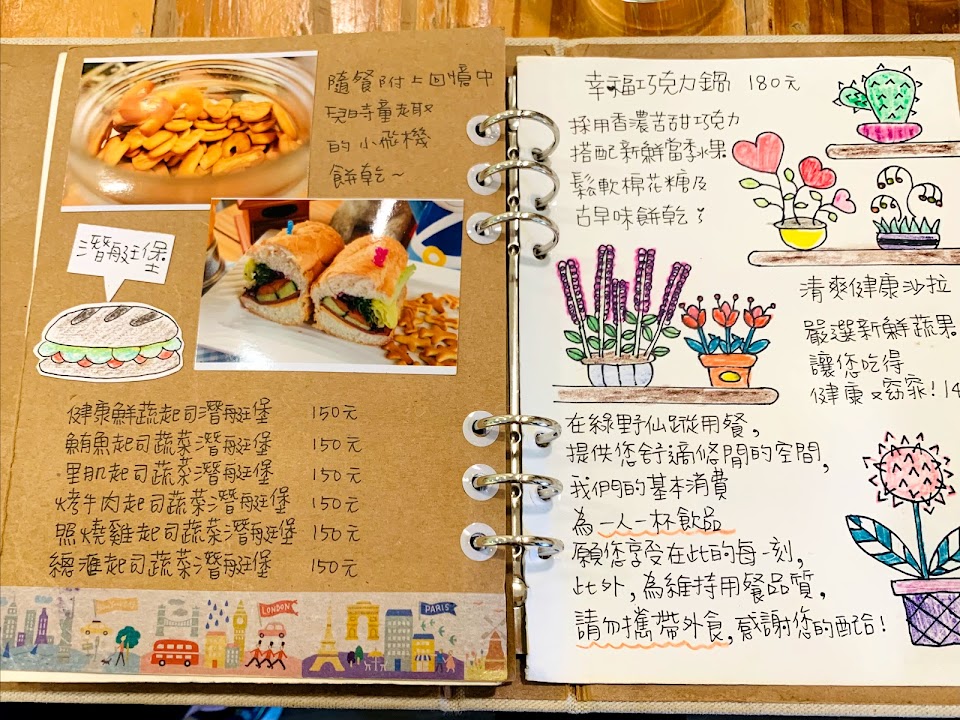 隨餐附上回憶中
兒時童趣
的小飛機
餅乾~
潛艇堡
健康鮮蔬起司潛艇堡 150元
鮪魚起司蔬菜潛艇堡 150元
里肌起司蔬菜潛艇堡 150元
烤牛肉起司蔬菜潛艇堡 150元
照燒雞起司蔬菜潛艇堡 150元
總滙起司蔬菜潛艇堡 150元
LONDON
PARIS
幸福巧克力鍋 180元
採用香濃苦甜巧克力
搭配新鮮當季水果
鬆軟棉花糖及
古早味餅乾
清爽健康沙拉
嚴選新鮮蔬果
讓您吃得
健康又窈窕! 14
在綠野仙蹤用餐,
提供您舒適悠閒的空間,
我們的基本消費
為一人一杯飲品
願您享受在此的每一刻,
此外,為維持用餐品質,
請勿攜帶外食,感謝您的配合!